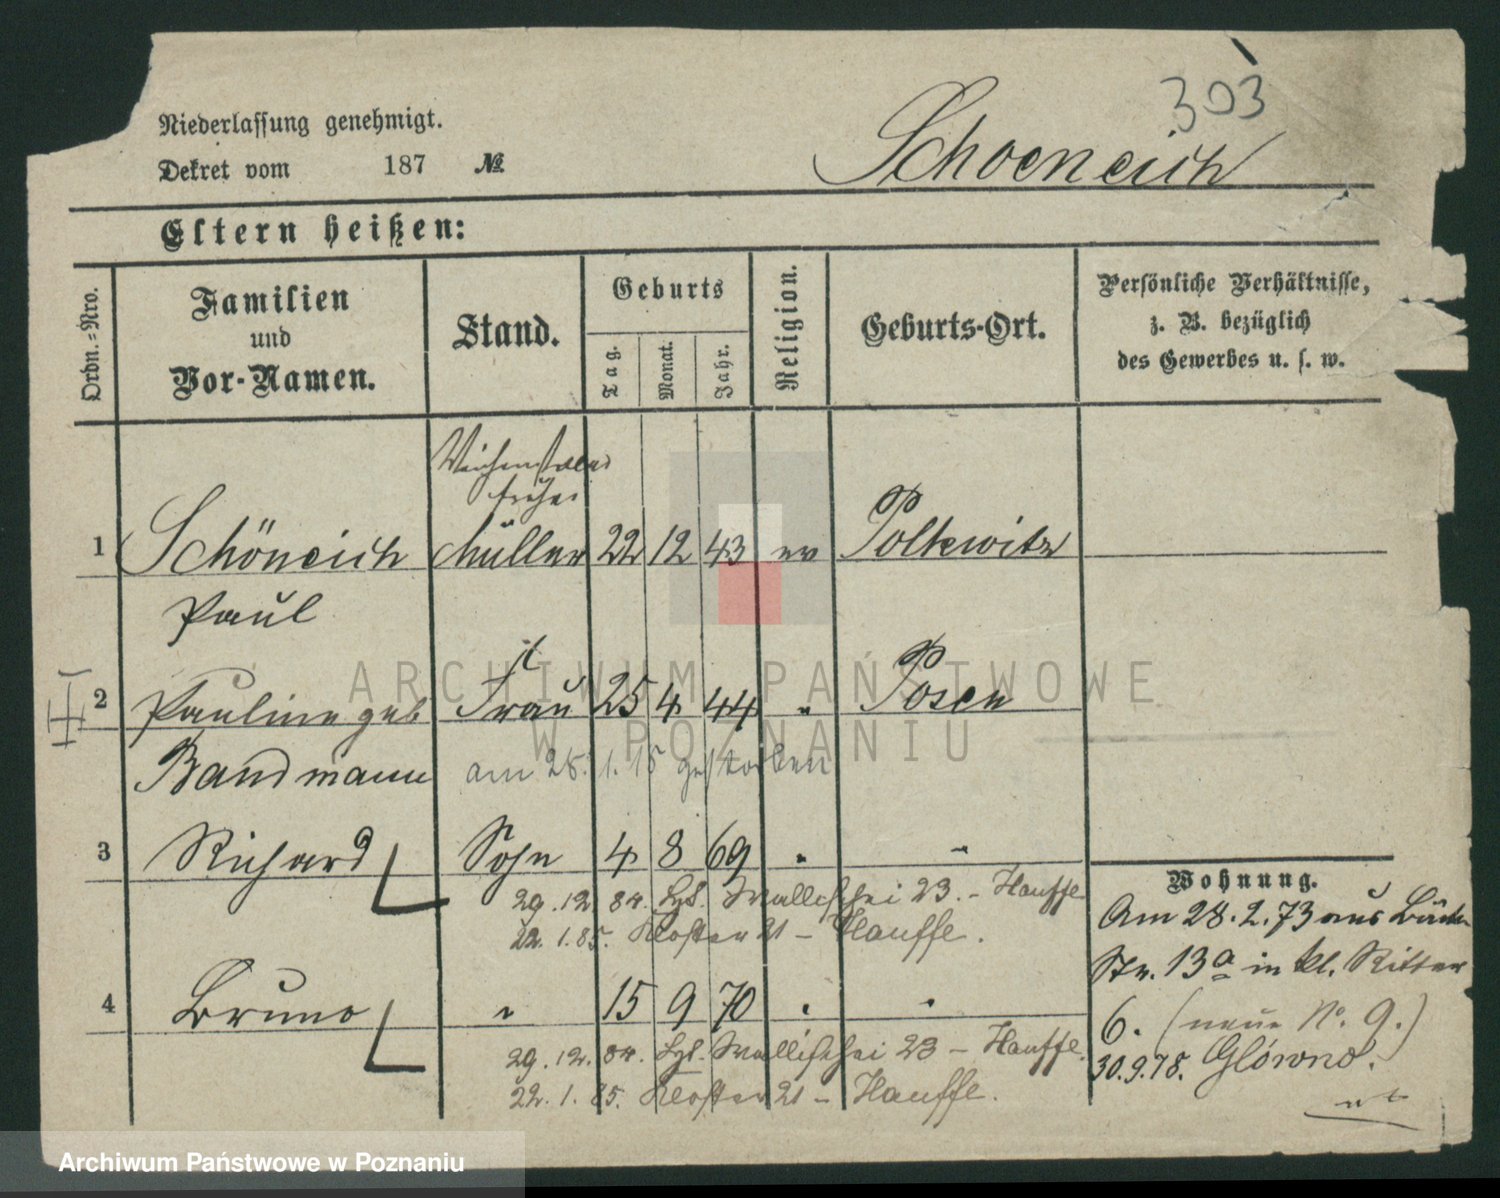 303
Niederlassung genehmigt.
Schoeneich
Dekret vom 187 №
Eltern heißen:
Ordn.-Nro.
Familien und Vor-Namen.
Stand.
Geburts
Tag.
Monat.
Jahr.
Religion.
Geburts-Ort.
Persönliche Verhältnisse,
z. B. bezüglich
des Gewerbes u. s. w.
Weichensteller
früher
1 Schöneich Müller 22 12 43 ev Polkwitz
Paul
2 Pauline geb Frau 25 4 44 " Posen
Bandmann am 28. 1. 15 gestorben
3 Richard Sohn 4 8 69 " "
29. 12. 84. Wallischei 23. - Hauffe
22. 1. 85. Kloster 21 - Hauffe.
4 Bruno " 15 9 70 " "
29. 12. 84. Wallischei 23 - Hauffe.
22. 1. 85. Kloster 21 - Hauffe.
Wohnung.
Am 28. 2. 73 aus
Str. 13a in kl. Ritter
6. (neue No. 9.)
30.9.78. Glówno.
ARCHIWUM PAŃSTWOWE
W POZNANIU
Archiwum Państwowe w Poznaniu